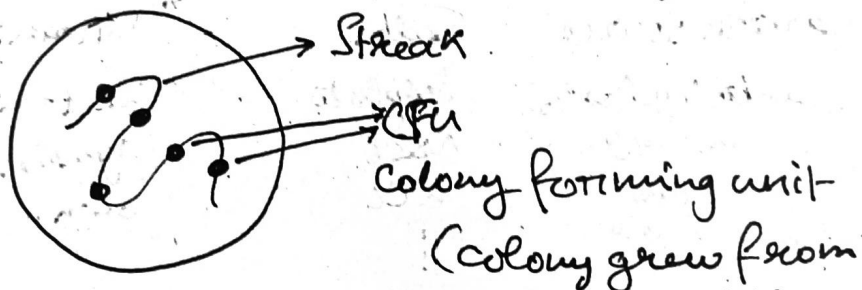 Streak
CFU
Colony forming unit
(colony grew from